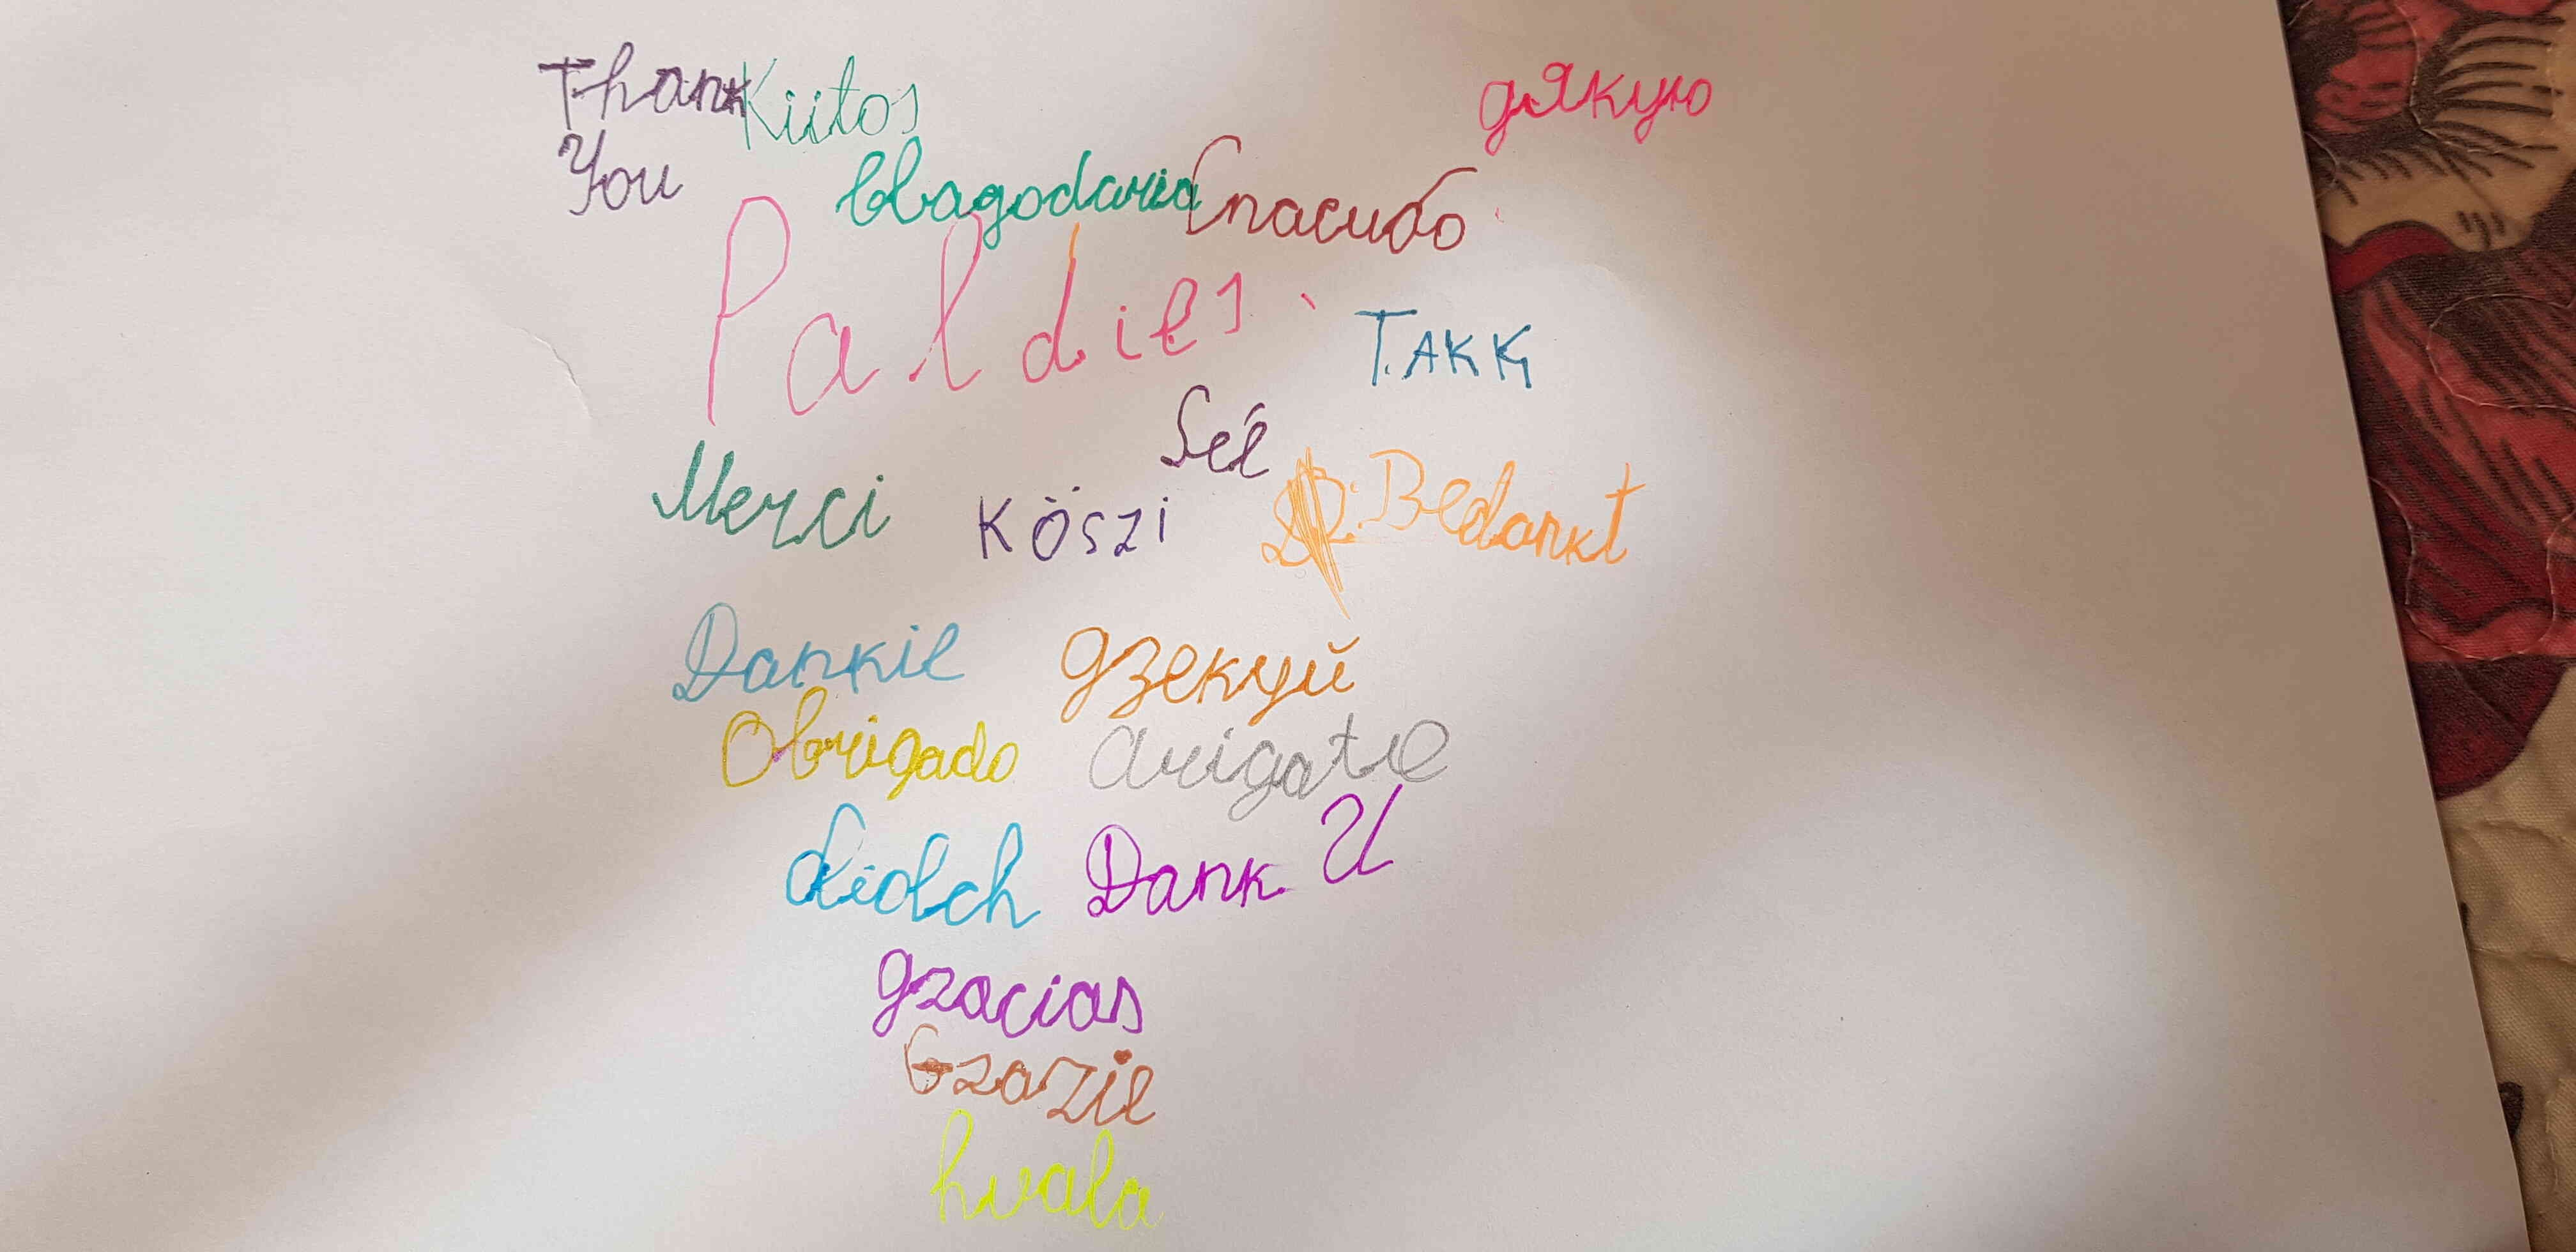 Thank Kiitos дякую
You
blagodaria Спасибо
Paldies
TAKK
Merci Köszi Bedankt
Dankie дзекуй
Obrigado
diolch Dank U
gracias
Grazie
hvala